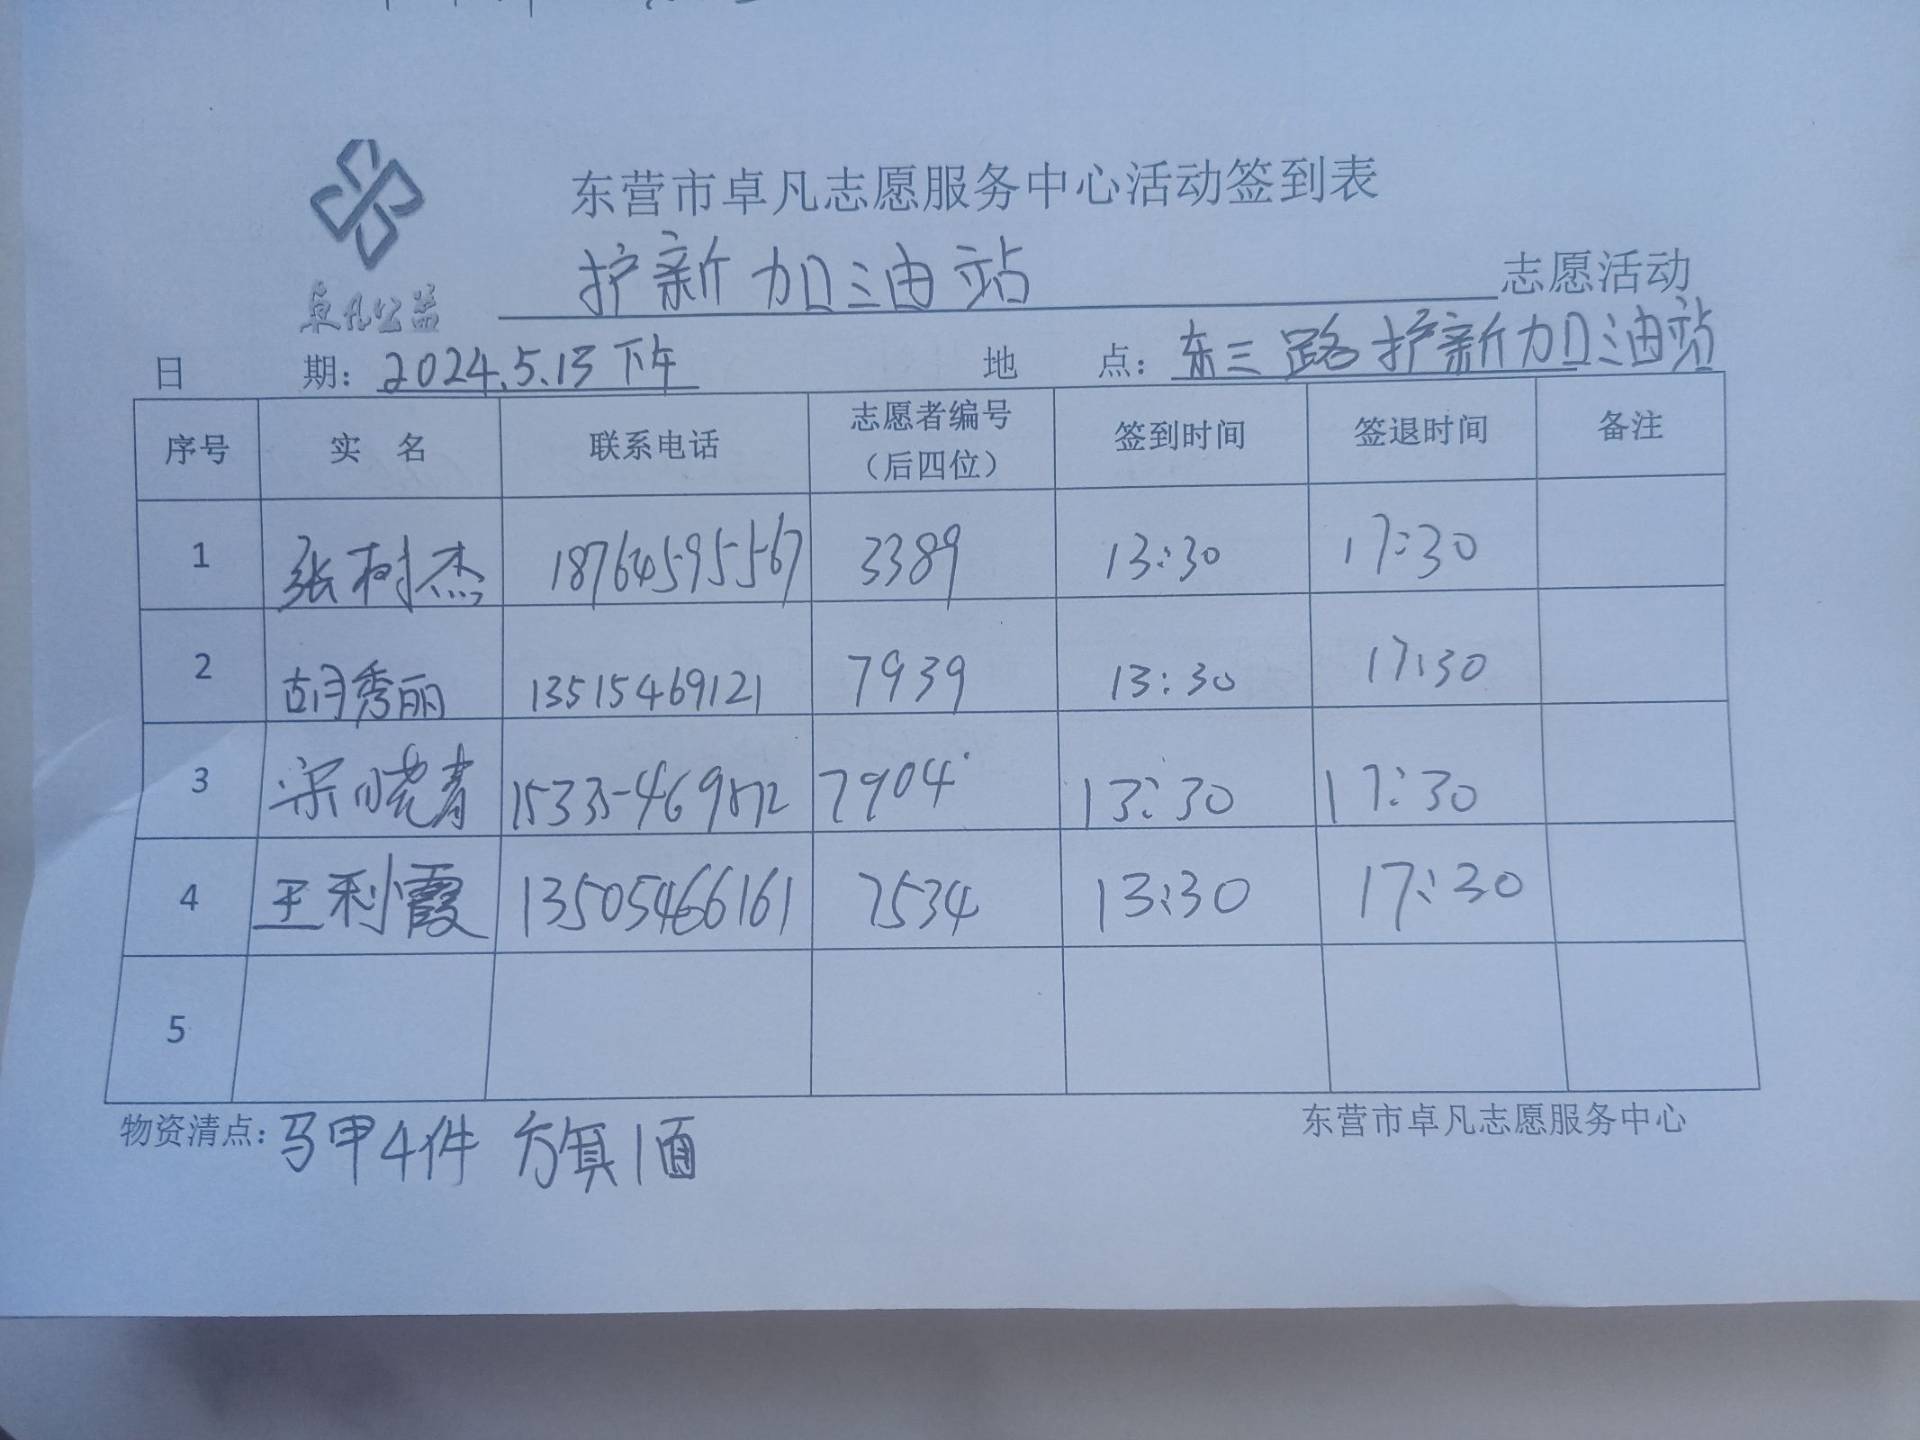 东营市卓凡志愿服务中心活动签到表
卓凡公益
护新加油站 志愿活动
日 期：2024.5.13下午 地 点：东三路护新加油站
序号 实 名 联系电话 志愿者编号（后四位） 签到时间 签退时间 备注
1 张树杰 18764595567 3389 13:30 17:30
2 胡秀丽 13515469121 7939 13:30 17:30
3 梁晓青 7904 13:30 17:30
4 王利霞 13505466161 7534 13:30 17:30
5
物资清点：马甲4件 旗1面
东营市卓凡志愿服务中心